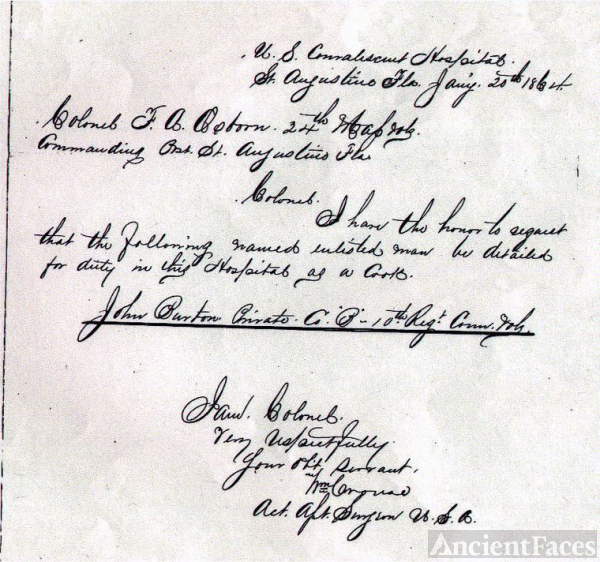 U. S. Convalescent Hospital.
St. Augustine Fla. Jany. 20th 1864.
Colonel F. A. Osborn. 24th Mass Vols.
Commanding Post. St. Augustine Fla
Colonel.
I have the honor to request
that the following named enlisted man be detailed
for duty in this Hospital as a Cook.
John Burton Private. Co. "B" - 10th Regt. Conn. Vols.
I am. Colonel.
Very respectfully
Your Obt. Servant.
Wm
Act. Asst. Surgeon U. S. A.
AncientFaces